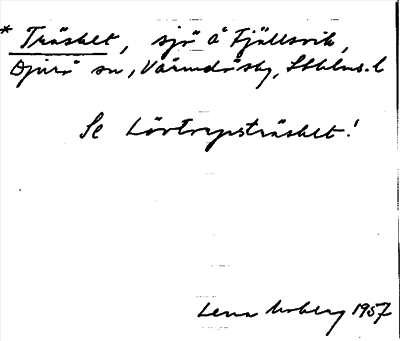 * Träsket, sjö å Fjällsvik,
Djurö sn, Värmdö sky, Sthlms. l
Se Lövtorpsträsket!
Lena Moberg 1957